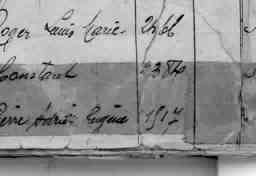 Roger Louis Marie 2466
Constant 2384
Pierre Adrien Eugène 1517